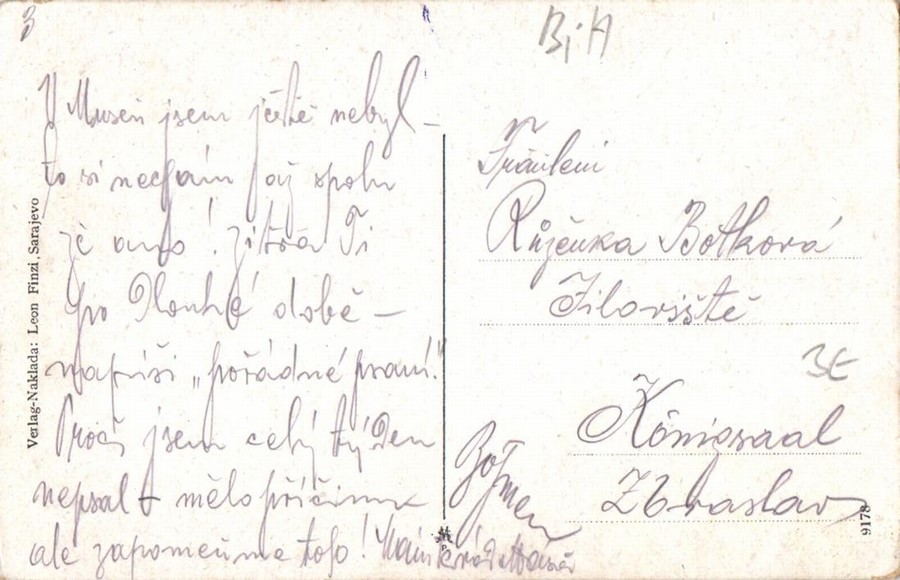 3
B i H
V Museu jsem ještě nebyl –
to si nechám až spolu
že ano! Zítra Ti
po Dlouhé době –
napíši „pořádné psaní!"
Proč jsem celý týden
nepsal – mělo příčinu
ale zapomeňme toho!
Fräulein
Růženka Botková
Jíloviště
3E
Königsaal
Zbraslav
Verlag-Naklada: Leon Finzi, Sarajevo
9178